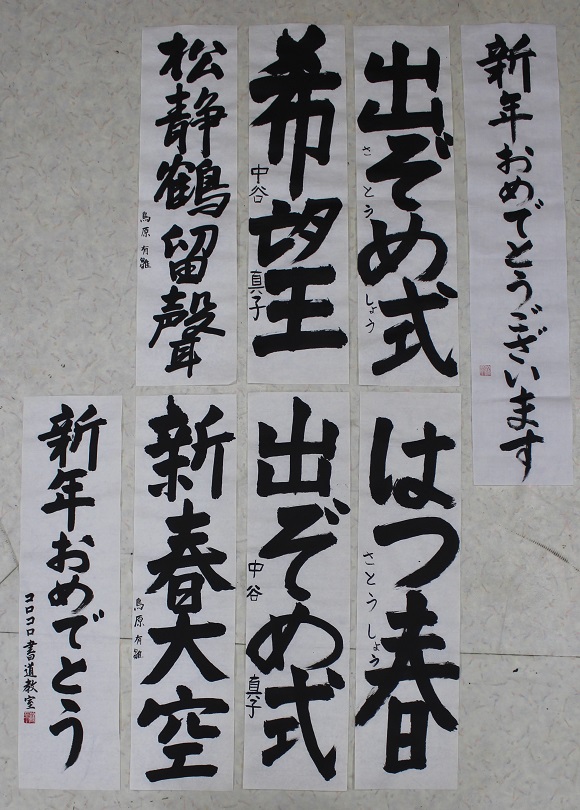 新年おめでとうございます
出ぞめ式
さとう しょう
希望
中谷 真子
松静鶴留聲
鳥原 有雛
はつ春
さとう しょう
出ぞめ式
中谷 真子
新春大空
鳥原 有雛
新年おめでとう
コロコロ書道教室